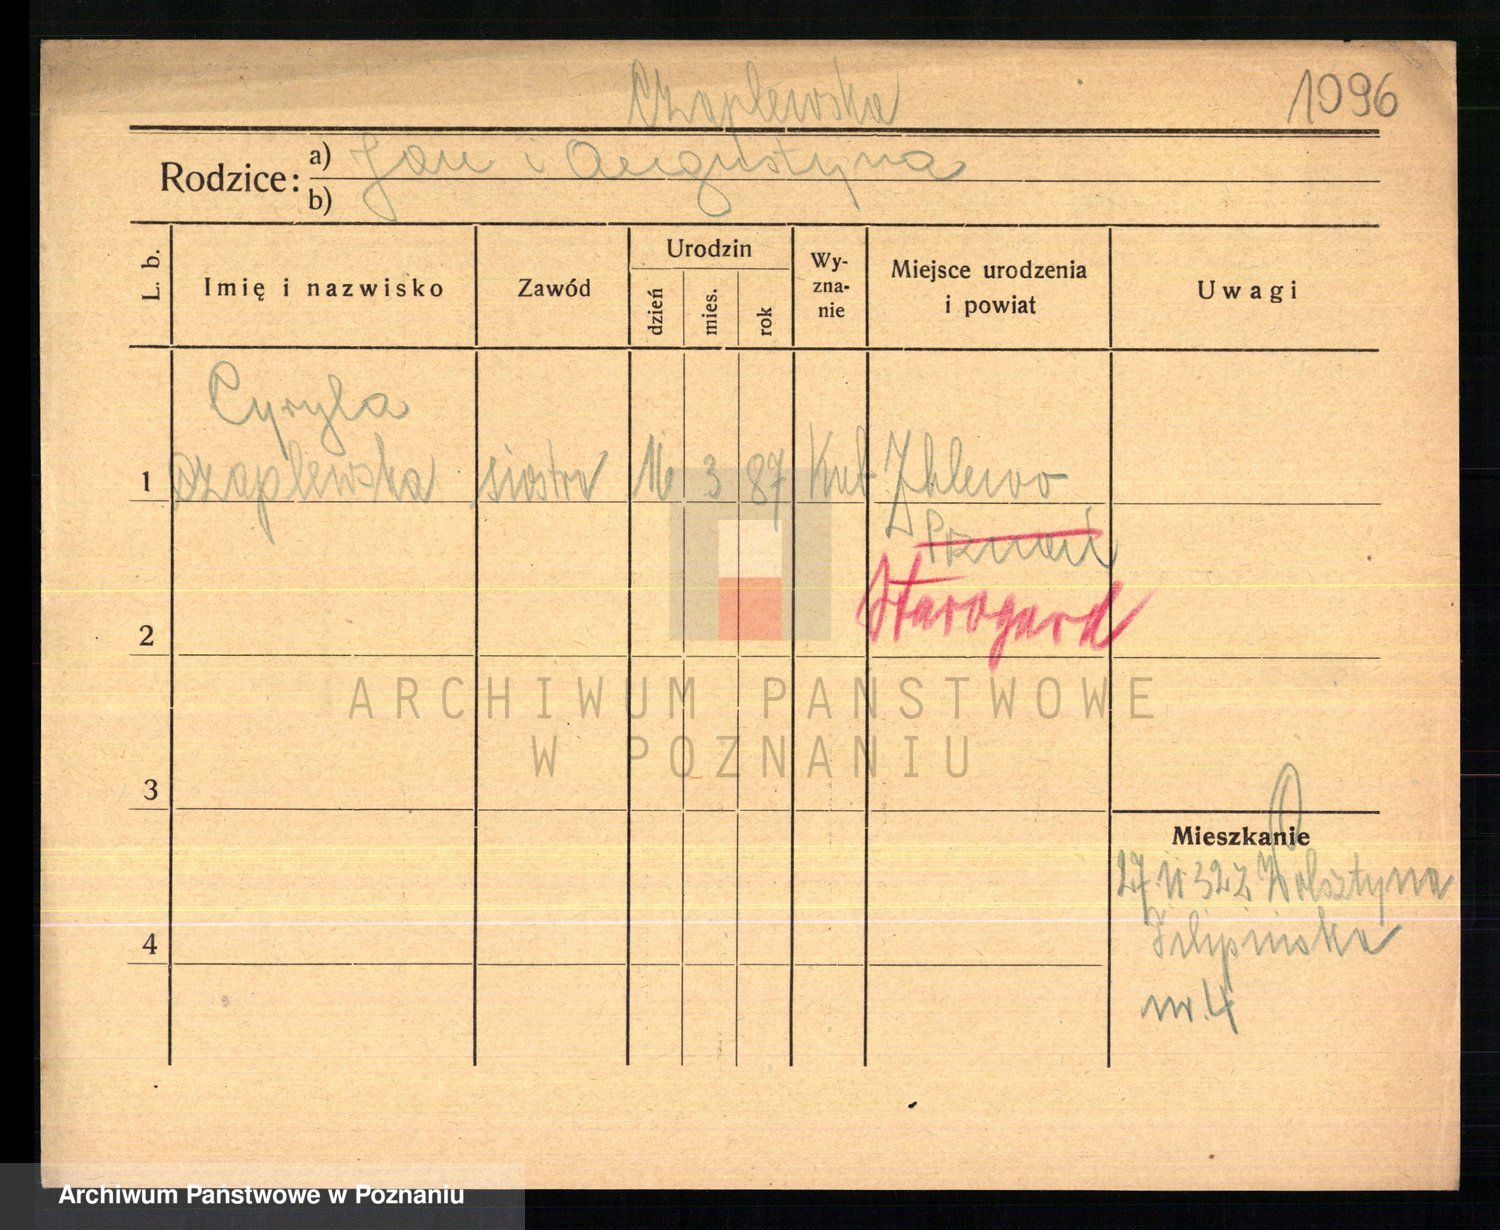 Czaplewska
1096
Rodzice:
a) Jan i Augustyna
b)
L. b.
Imię i nazwisko
Zawód
Urodzin
dzień
mies.
rok
Wy-
zna-
nie
Miejsce urodzenia
i powiat
Uwagi
Cyryla
1 Czaplewska siostra 16 3 87 Kat Zblewo
Poznań
Starogard
2
ARCHIWUM PAŃSTWOWE
W POZNANIU
3
Mieszkanie
27. 32 z Wolsztyna
nr. 4
4
Archiwum Państwowe w Poznaniu